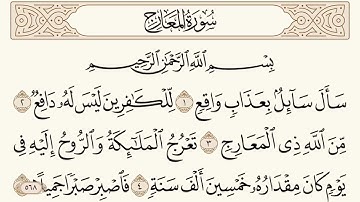 سُورَةُ المَعَارِجِ
بِسْمِ اللَّهِ الرَّحْمَٰنِ الرَّحِيمِ
سَأَلَ سَآئِلُۢ بِعَذَابٖ وَاقِعٖ ١ لِّلۡكَٰفِرِينَ لَيۡسَ لَهُۥ دَافِعٞ ٢
مِّنَ ٱللَّهِ ذِي ٱلۡمَعَارِجِ ٣ تَعۡرُجُ ٱلۡمَلَٰٓئِكَةُ وَٱلرُّوحُ إِلَيۡهِ فِي
يَوۡمٖ كَانَ مِقۡدَارُهُۥ خَمۡسِينَ أَلۡفَ سَنَةٖ ٤ فَٱصۡبِرۡ صَبۡرٗا جَمِيلًا ٥٦٨